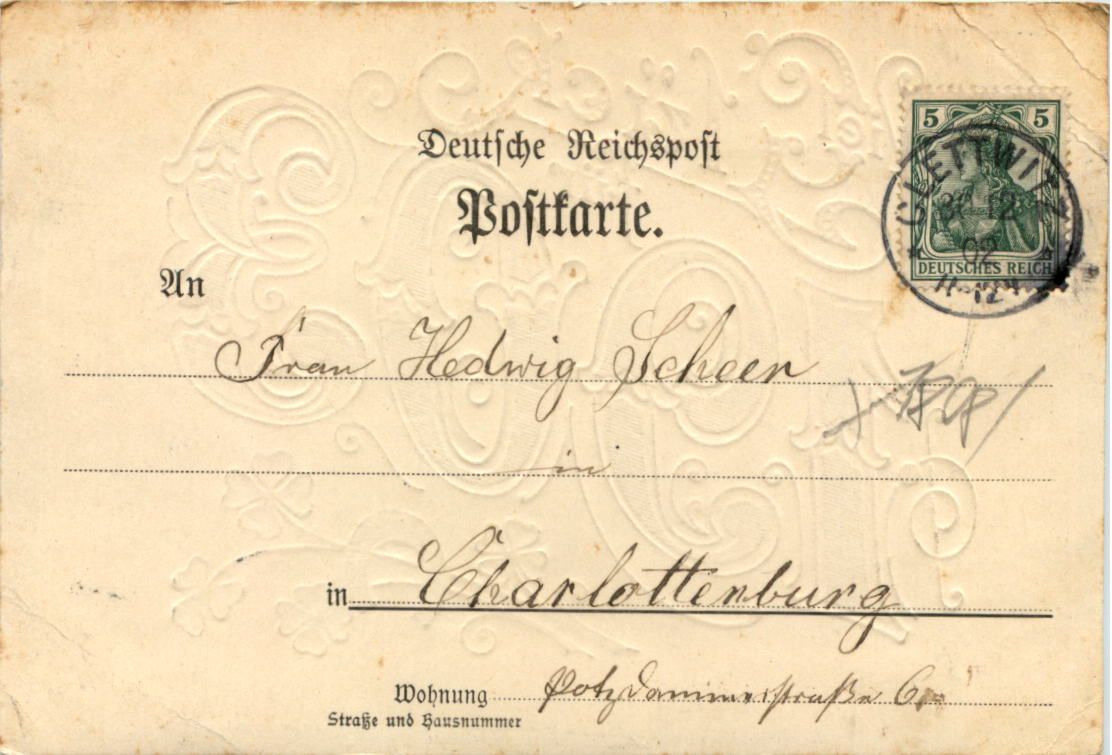 Deutsche Reichspost
Postkarte.
5 5
CLETTWITZ
12
02
11-12V
DEUTSCHES REICH
An
Frau Hedwig Scheer
in
in Charlottenburg
Wohnung Potzdammerstraße 6
Straße und Hausnummer